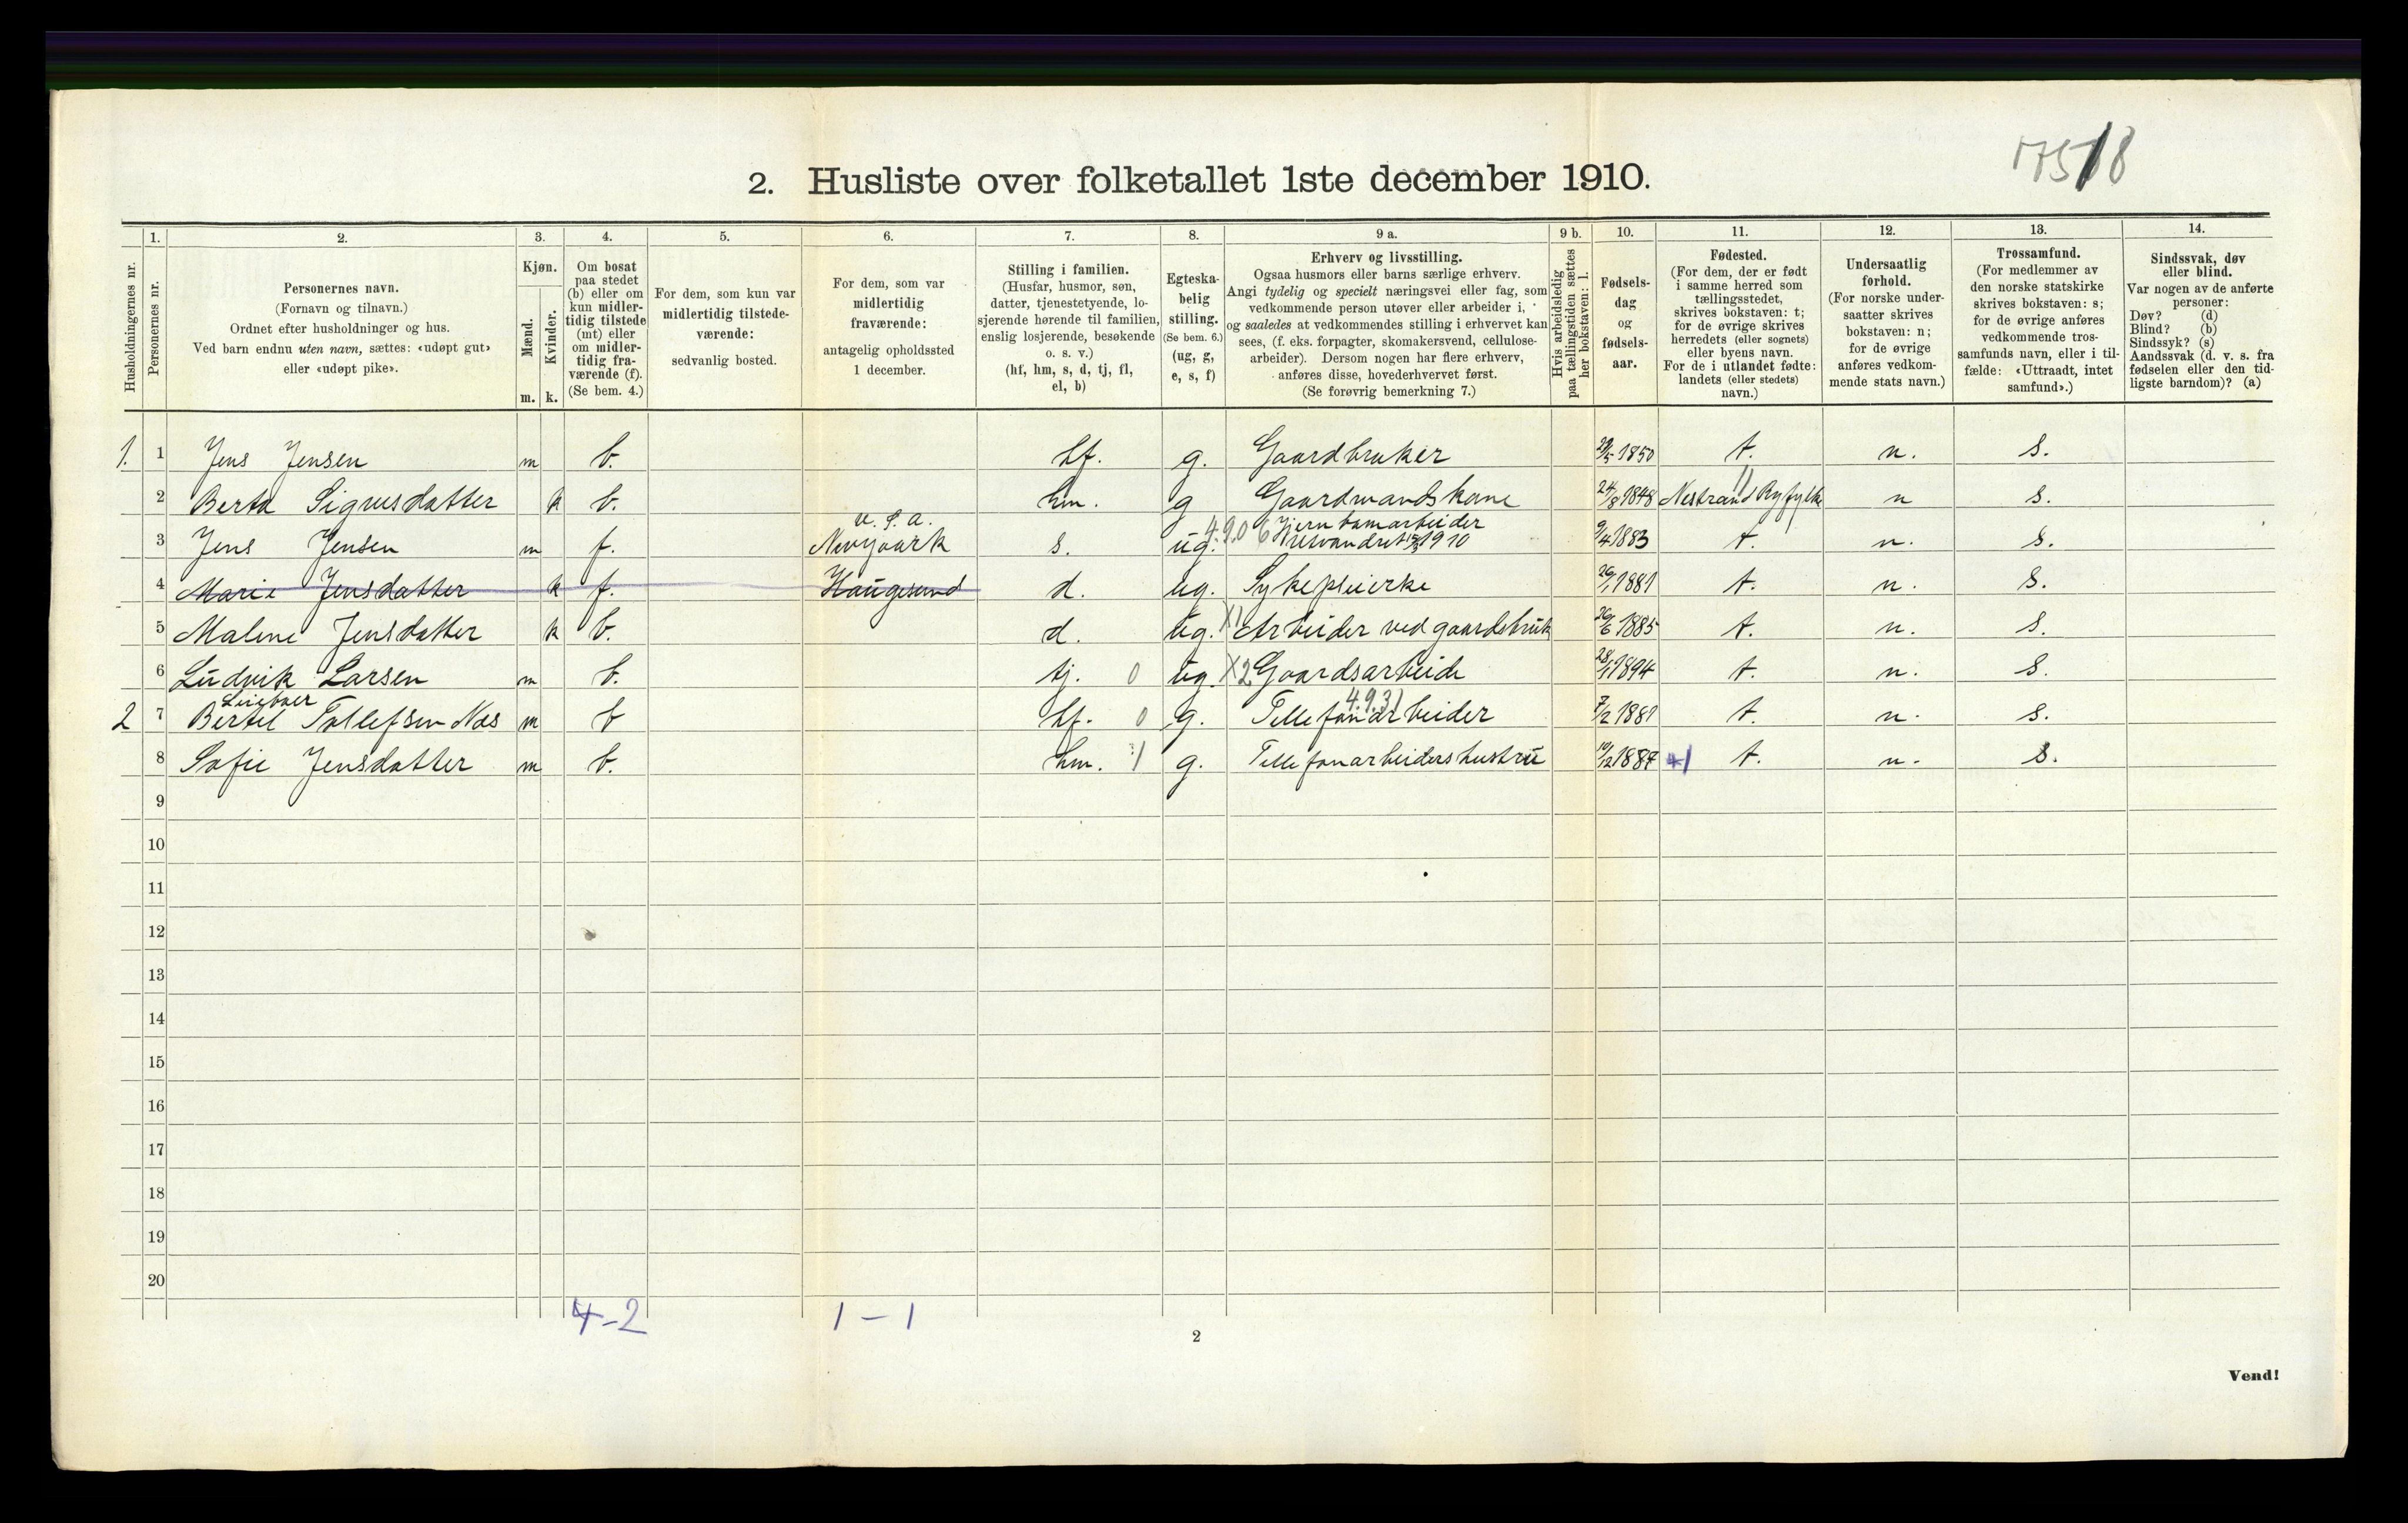 17518
2. Husliste over folketallet 1ste december 1910.
Husholdningernes nr.
1.
Personernes nr.
2.
Personernes navn.
(Fornavn og tilnavn.)
Ordnet efter husholdninger og hus.
Ved barn endnu uten navn, sættes: «udøpt gut»
eller «udøpt pike».
3.
Kjøn.
Mænd.
Kvinder.
m. k.
4.
Om bosat
paa stedet
(b) eller om
kun midler-
tidig tilstede
(mt) eller
om midler-
tidig fra-
værende (f).
(Se bem. 4.)
5.
For dem, som kun var
midlertidig tilstede-
værende:
sedvanlig bosted.
6.
For dem, som var
midlertidig
fraværende:
antagelig opholdssted
1 december.
7.
Stilling i familien.
(Husfar, husmor, søn,
datter, tjenestetyende, lo-
sjerende hørende til familien,
enslig losjerende, besøkende
o. s. v.)
(hf, hm, s, d, tj, fl,
el, b)
8.
Egteska-
belig
stilling.
(Se bem. 6.)
(ug, g,
e, s, f)
9 a.
Erhverv og livsstilling.
Ogsaa husmors eller barns særlige erhverv.
Angi tydelig og specielt næringsvei eller fag, som
vedkommende person utøver eller arbeider i,
og saaledes at vedkommendes stilling i erhvervet kan
sees, (f. eks. forpagter, skomakersvend, cellulose-
arbeider). Dersom nogen har flere erhverv,
anføres disse, hovederhvervet først.
(Se forøvrig bemerkning 7.)
9 b.
Hvis arbeidsledig
paa tællingstiden sættes
her bokstaven: l.
10.
Fødsels-
dag
og
fødsels-
aar.
11.
Fødested.
(For dem, der er født
i samme herred som
tællingsstedet,
skrives bokstaven: t;
for de øvrige skrives
herredets (eller sognets)
eller byens navn.
For de i utlandet fødte:
landets (eller stedets)
navn.)
12.
Undersaatlig
forhold.
(For norske under-
saatter skrives
bokstaven: n;
for de øvrige
anføres vedkom-
mende stats navn.)
13.
Trossamfund.
(For medlemmer av
den norske statskirke
skrives bokstaven: s;
for de øvrige anføres
vedkommende tros-
samfunds navn, eller i til-
fælde: «Uttraadt, intet
samfund».)
14.
Sindssvak, døv
eller blind.
Var nogen av de anførte
personer:
Døv? (d)
Blind? (b)
Sindssyk? (s)
Aandssvak (d. v. s. fra
fødselen eller den tid-
ligste barndom)? (a)
1. 1 Jens Jensen m b. hf. g. Gaardbruker 29/5 1850 t. n. s.
2 Berta Sigursdatter k b. hm. g Gaardmandskone 24/8 1848 Nestrand Ryfylke n s.
u. S. a. 4.9.06 Jernbanearbeider
3 Jens Jensen m f. Nevyoark s. ug. 1910 9/4 1883 t. n. s.
4 Marie Jensdatter k f. Haugesund d. ug. Sykepleierke 26/1 1881 t. n. s.
5 Malene Jensdatter k b. d. ug. X1 Arbeider ved gaardsbruk 26/6 1885 t. n. s.
6 Ludvik Larsen m b. tj. 0 ug. X2 Gaardsarbeide 28/1 1894 t. n. s.
4.9.31
2 7 Bertel Tollefsen Næs m b hf. 0 g. Tellefonarbeider 7/2 1881 t. n. s.
8 Sofie Jensdatter m b. hm. 1 g. Tellefonarbeidershustru 10/12 1887 t. n. s.
9
10
11
12
13
14
15
16
17
18
19
20
4-2 1-1
2
Vend!